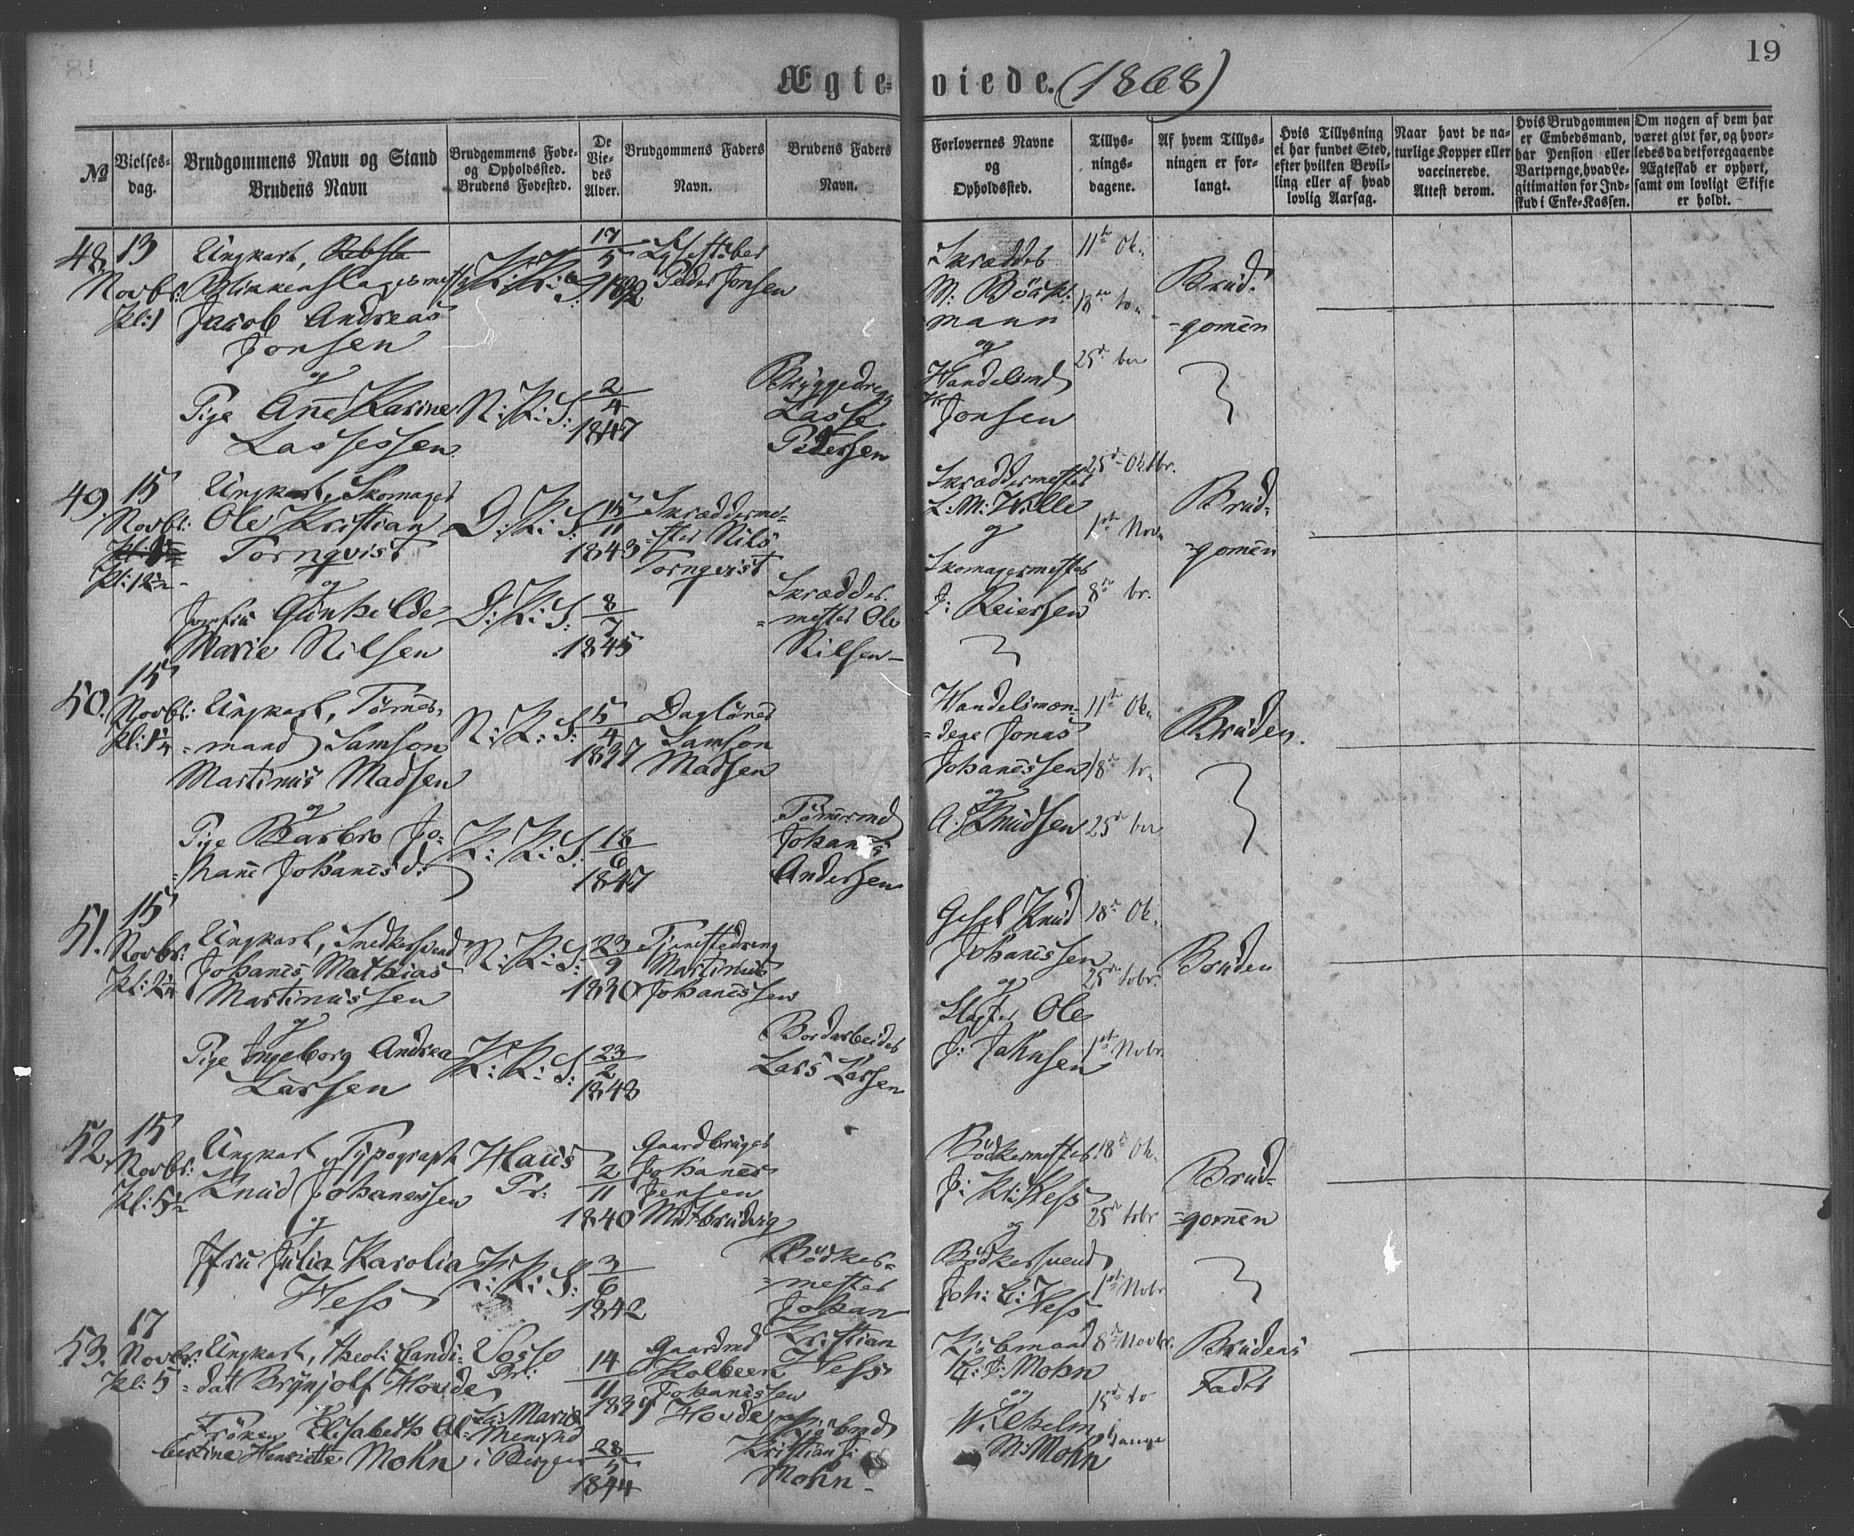 19
Ægteviede. (1868)
№
Vielsesdag.
Brudgommens Navn og Stand
Brudens Navn
Brudgommens Føde- og Opholdssted.
Brudens Fødested.
De Viedes Alder.
Brudgommens Faders Navn.
Brudens Faders Navn.
Forlovernes Navne og Opholdssted.
Tillysningsdagene.
Af hvem Tillysningen er forlangt.
Hvis Tillysning ei har fundet Sted, efter hvilken Bevilling eller af hvad lovlig Aarsag.
Naar havt de naturlige Kopper eller vaccinerede. Attest derom.
Hvis Brudgommen er Embedsmand, har Pension eller Vartpenge, hvad Legitimation for Indskud i Enke-Kassen.
Om nogen af dem har været givt før, og hvorledes da det foregaaende Ægteskab er ophørt, samt om lovligt Skifte er holdt.
48. 13
Novbr:
Kl: 1
Ungkarl,
Blikkenslagermester
Jacob Andreas
Jonsen
og
Pige Ane Karine
Lassessen
N: K: S:
2/4 1847
Peder Jonsen
Lasse
Petersen
Skrædder
mann
og
Handelsmd
Jonsen
11te Ok
18de to
25de ber
Brud-
gomen
49. 15
Novbr:
Kl: 12
Ungkarl, Skomager
Ole Kristian
Tornqvist
og
Jomfru Gunhilde
Marie Nilsen
D: K: S:
15/11 1843
D: K: S:
8/7 1845
Skræddermester
Nils
Tornqvist
Skræddermester
Ole
Nilsen
Skræddermester
L. M: Wille
og
Skomagermester
J: Reiersen
25de Oktbr.
1ste Nov
8de br.
Brud-
gomen
50. 15
Novbr:
Ungkarl, Tømmermand
Samson
Martinus Madsen
og
Pige Barbro Johane
Johanesd.
N: K: S:
5/4 1837
K: K: S:
18/6 1847
Dagløner
Samson
Madsen
Tømmermd
Johanes
Andersen
Handelsmændene
Jonas
Johanessen
og
A. Knudsen
11te Ok
18de to
25de ber
Bruden.
51. 15
Novbr:
Ungkarl, Snedkersvend
Johanes Mathias
Martinussen
og
Pige Ingeborg Andrea
Larsen
N: K: S:
23/9
K: K: S:
23/2 1848
Tjenestedreng
Martinus
Johanessen
Bordarbeider
Lars Larsen
Knud
Johanessen
og
Slagter Ole
J: Jahnsen
18de Ok.
25de tobr.
1ste Nobr.
Bruden
52. 15
Novbr:
Kl: 5½
Ungkarl, Typograph
Knud Johanessen
og
Jfru Julia Karolia
Hess
Haus
Pr:
2/11 1840
K: K: S:
3/6 1842
Gaardbruger
Johanes
Jensen
Bødkermester
Johan
Kristian
Hess
Bødkermester
J: Kr: Hess
og
Bødkersvend
Joh: C: Hess
18de Ok.
25de tobr
1ste Nobr
Brud-
gomen
53. 17
Novbr:
Kl: 5
Ungkarl, theol: Candidat
Brynjolf Hovde
og
Frøken Elisabeth Albertine
Henriette Mohn
Vosse
Pr:
Sta Marie
Menighd
i Bergen
14/11 1839
28/5 1844
Gaardmd
Kolbein
Johanessen
Hovde
Kjøbmd
Kristian
Mohn
Kjøbmand
Mohn
og
Wilhelm
M: Mohn
8de Novbr.
15de to
Gange
Brudens
Fader